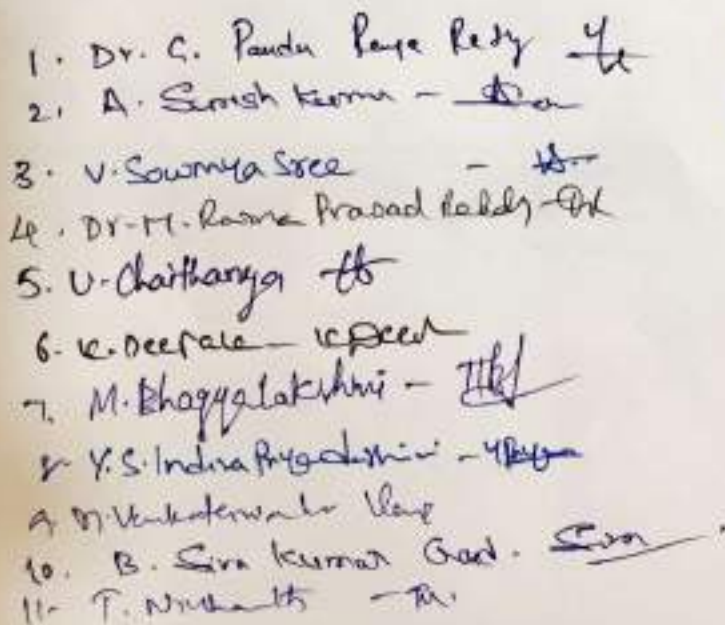 1. Dr. G. Pandu Ranga Reddy
2. A. Suresh Kumar -
3. V. Sowmya Sree -
4. Dr. M. Rama Prasad Reddy -
5. U. Chaithanya
6. K. Deepala - K Deed
7. M. Bhagyalakshmi -
8. Y.S. Indira Priyadarshini -
9. M. Venkateswarlu
10. B. Siva Kumar Goud. Siva
11. T. Nishanth -